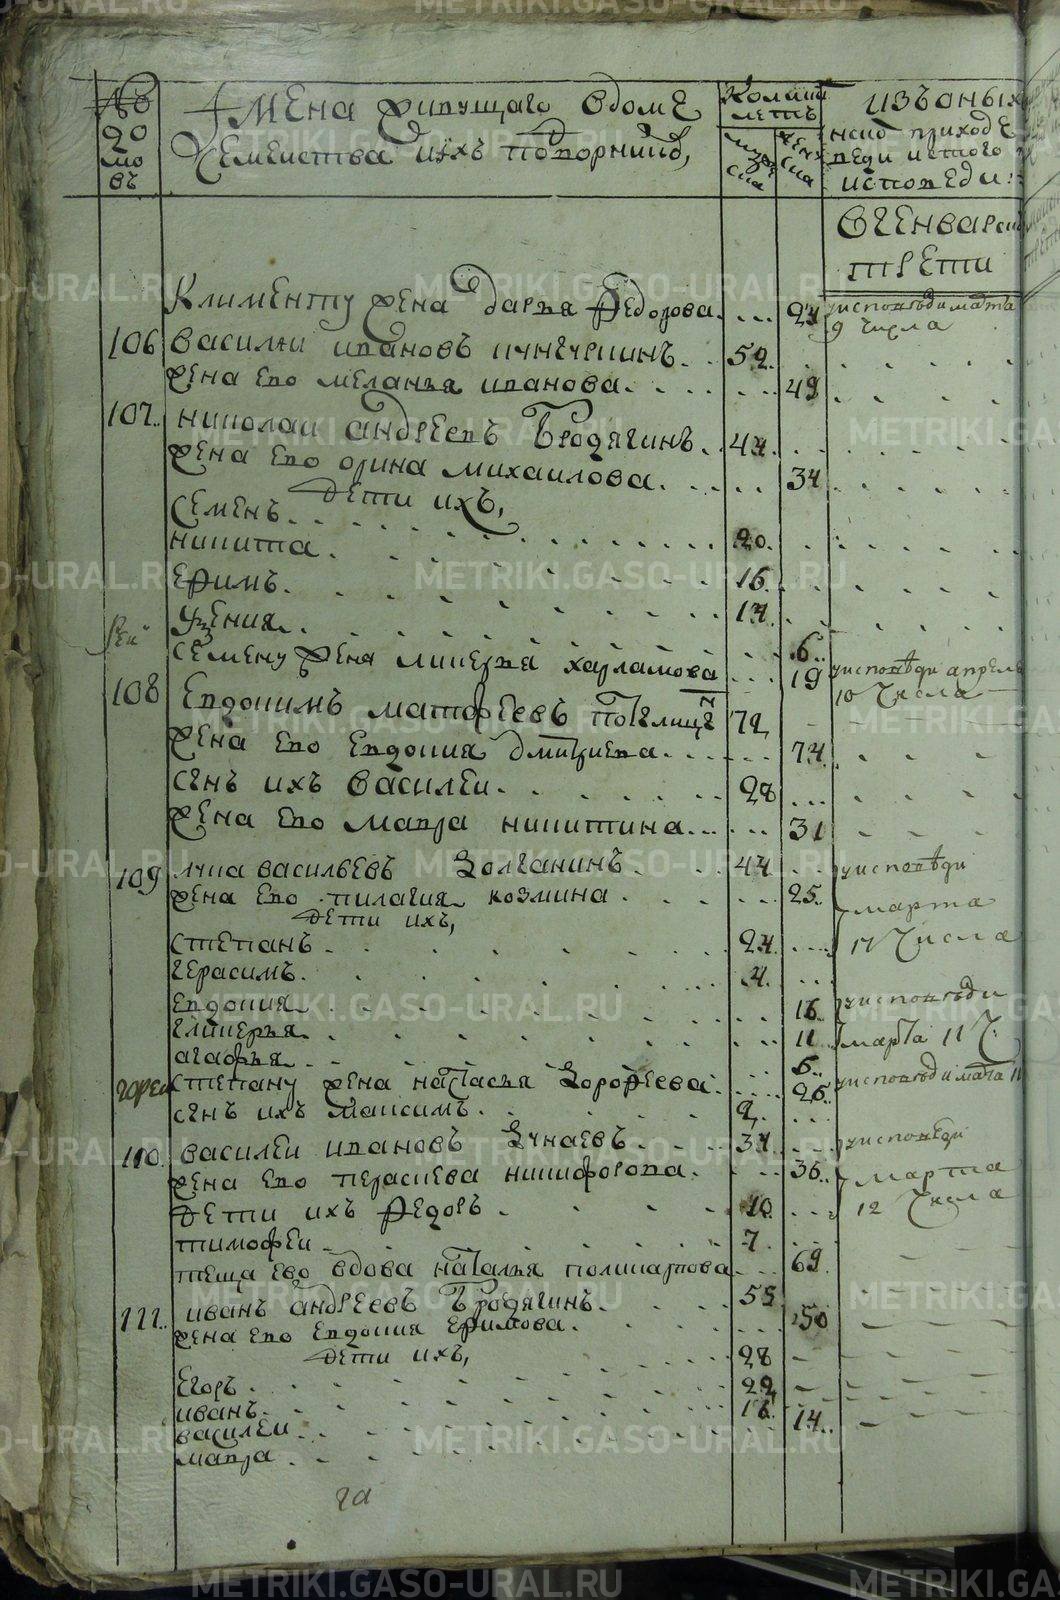 №
домовъ
Имена живущаго в доме
и семеиства ихъ поворишно,
Колико летъ
мужеска
женска
изъ оныхъ
испеди и того
исповеди:
В генварской
трети
Клименту жена Дарья Федорова 24 у исповеди марта
9 числа
106 Василеи Ивановъ 52
жена ево Меланья Иванова 49
107 Николаи Андреевъ Бродягинъ 44
жена ево Орина Михаилова 34
дети ихъ,
Семенъ 20
Никита 16
Ефимъ 14
Узения 6
Семену жена Ликерья Харламова 19 у исповеди апреля
10 числа
108 Евдокимъ Матфеевъ 72
жена ево Евдокия Дмитриева 74
сынъ ихъ Василеи 28
жена ево Мавра Никитина 31
109 Лука Васильевъ Золганинъ 44 у исповеди
жена ево Пилагия Козмина 25 марта
дети ихъ,
Степанъ 24 17 числа
Герасимъ 4
Евдокия 16 у исповеди
Гликерья 11 марта 11 ч:
Агафья 6
Степану жена Настасья Дорофеева 26 у исповеди марта 11
сынъ ихъ Максимъ 2
110 Василеи Ивановъ Зунаевъ 34 у исповеди
жена ево Пераскева Никифорова 36 марта
дети ихъ Федоръ 10 12 числа
Тимофеи 7
теща ево вдова Наталья Поликарпова 69
111 Иванъ Андреевъ Бродягинъ 55
жена ево Евдокия Ефимова 50
дети ихъ,
Егоръ 28
Иванъ 22
Василеи 16
Мавра 14
METRIKI.GASO-URAL.RU